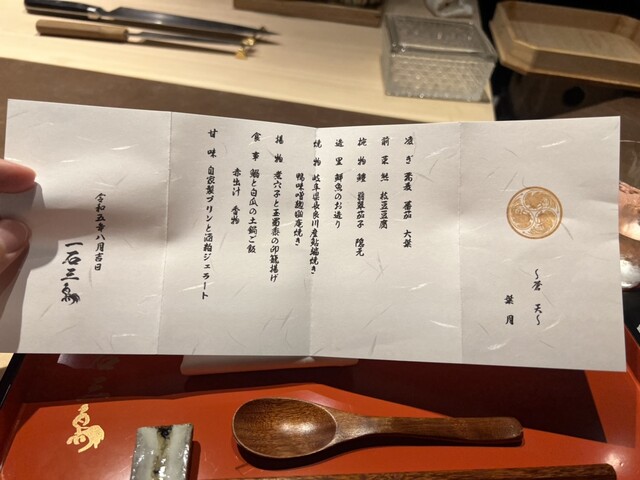 〜蒼 天〜
葉月
凌ぎ 蕎麦 蕃茄 大葉
前菜 枝豆豆腐
椀物 鱧 翡翠茄子 隠元
造里 鮮魚のお造り
焼物 岐阜県長良川産鮎塩焼き
鴨味噌麹幽庵焼き
揚物 煮穴子と玉蜀黍の印籠揚げ
食事 鰯と白瓜の土鍋ご飯
赤出汁 香物
甘味 自家製プリンと酒粕ジェラート
令和五年八月吉日
一石三鳥